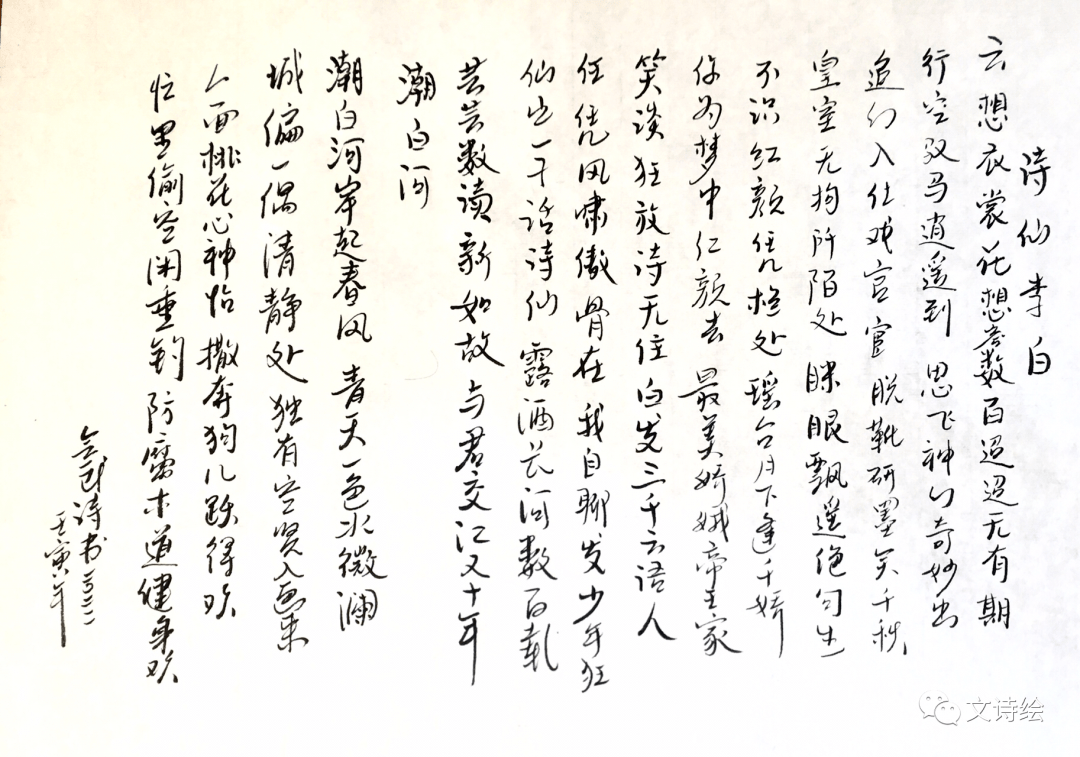 诗仙李白
云想衣裳花想容数百迢迢无有期
行空驭马逍遥到思飞神幻奇妙出
追幻入仕戏宫宦脱靴研墨笑千秋
皇室无拘阡陌处眯眼飘遥绝句生
不识红颜凭槛处瑶台月下逢千娇
你为梦中仁颜去最美娇娥帝王家
笑谈狂放诗无住白发三千云语人
任凭风啸傲骨在我自聊发少年狂
仙也一干话诗仙露酒长河数百载
芸芸数读新如故与君交江又十年
潮白河
潮白河岸起春风青天一色水微澜
城偏一偶清静处独有空贤入画来
人面桃花心神怡撒奔狗儿跃得欢
忙里偷空闲垂钓防腐木道健身欢
诗书
壬寅年
文诗绘